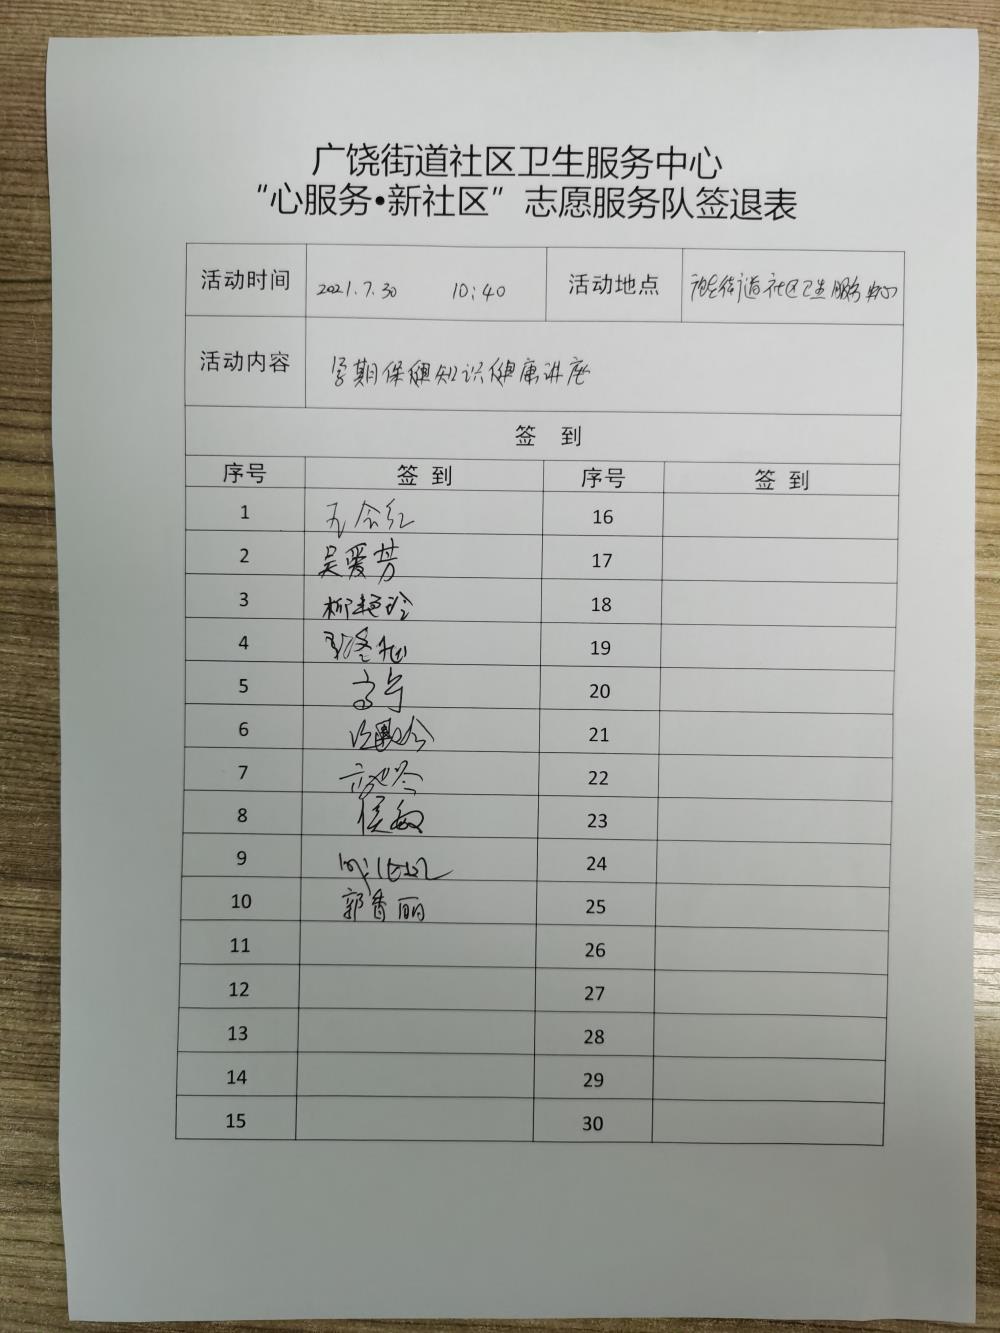 广饶街道社区卫生服务中心
“心服务•新社区”志愿服务队签退表
活动时间 2021.7.30 10:40 活动地点 街道社区卫生服务中心
活动内容 孕期保健知识健康讲座
签 到
序号 签到 序号 签到
1 16
2 吴爱芳 17
3 柳艳玲 18
4 19
5 20
6 21
7 22
8 侯敏 23
9 24
10 郭香丽 25
11 26
12 27
13 28
14 29
15 30